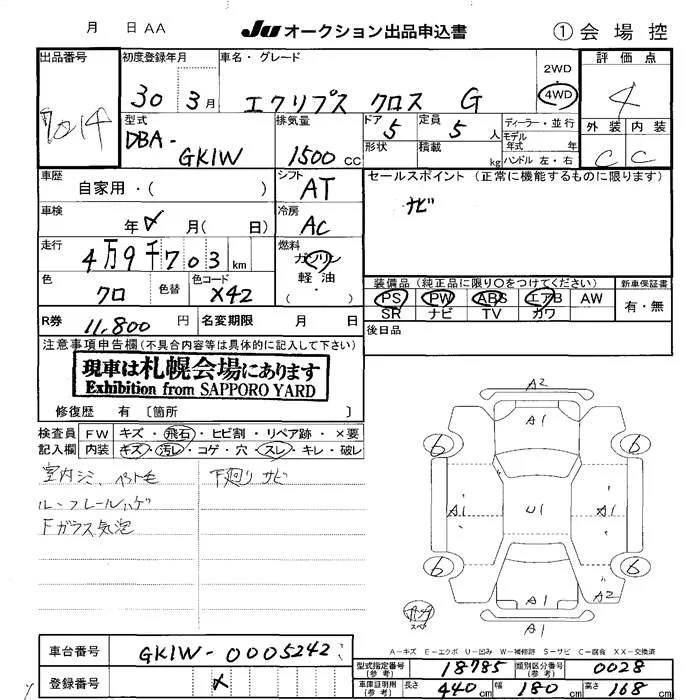 月 日 AA JU オークション出品申込書 ① 会場控
出品番号 初度登録年月 車名・グレード 2WD 評価点
7014 30 3月 エクリプス クロス G 4WD 4
型式 排気量 ドア 定員 ディーラー・並行 外装 内装
DBA-GK1W 1500cc 5 5人 モデル年式 年 C C
形状 積載 kg ハンドル 左・右
車歴 シフト セールスポイント (正常に機能するものに限ります)
自家用・( ) AT ナビ
車検 冷房
年 〆 月( 日) AC
走行 燃料
4万9千703km ガソリン
軽・油
・( )
色 色替 色コード 装備品 (純正品に限り○をつけてください) 新車保証書
クロ X42 PS PW ABS エアB AW 有・無
SR ナビ TV カワ
R券 11,800円 名変期限 月 日 後日品
注意事項申告欄(不具合内容等は具体的に記入して下さい)
現車は札幌会場にあります
Exhibition from SAPPORO YARD
修復歴 有 〔箇所 〕
検査員 FW キズ・飛石・ヒビ割・リペア跡・×要
記入欄 内装 キズ・汚レ・コゲ・穴・スレ・キレ・破レ
室内シミ、ペット毛 下廻りサビ
ルーフレールハゲ
Fガラス気泡
A2
A1
6 6
A1 U1 A1
6 6
A1 A1
スペア
A1
A-キズ E-エクボ U-凹み W-補修跡 S-サビ C-腐食 XX-交換済
車台番号 GK1W-0005242 型式指定番号(参考) 18785 類別区分番号(参考) 0028
登録番号 〆 車庫証明用(参考) 長さ 440cm 幅 180cm 高さ 168cm